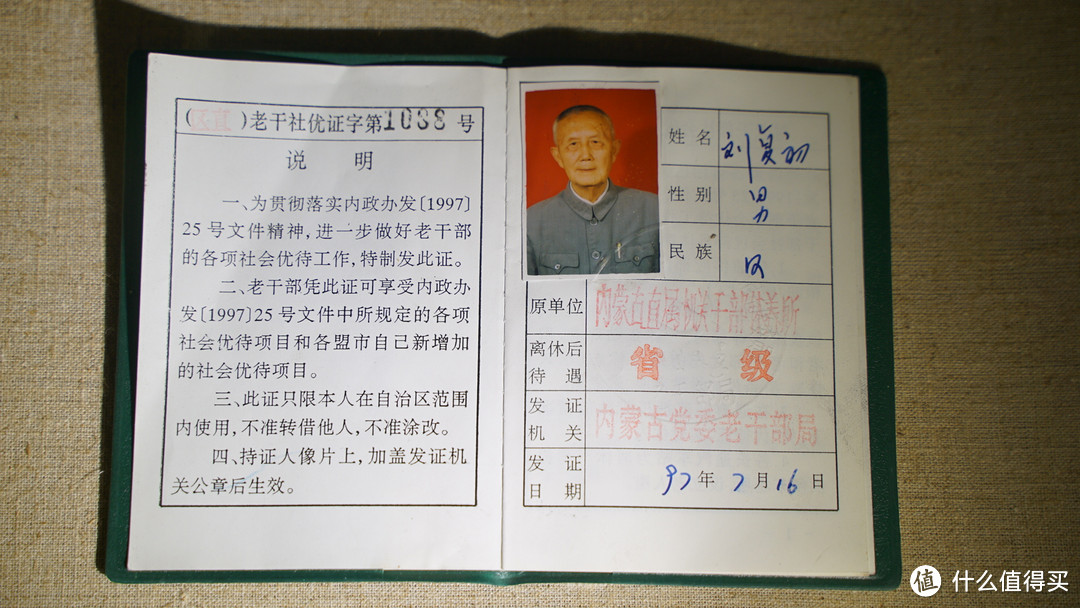 ( )老干社优证字第1088 号
说 明
一、为贯彻落实内政办发〔1997〕
25号文件精神,进一步做好老干部
的各项社会优待工作,特制发此证。
二、老干部凭此证可享受内政办
发〔1997〕25号文件中所规定的各项
社会优待项目和各盟市自己新增加
的社会优待项目。
三、此证只限本人在自治区范围
内使用,不准转借他人,不准涂改。
四、持证人像片上,加盖发证机
关公章后生效。
姓 名 刘复初
性 别 男
民 族 汉
原单位 内蒙古直属机关干部休养所
离休后
待 遇
省 级
发 证
机 关
内蒙古党委老干部局
发 证
日 期
97年 7月16日
值 什么值得买